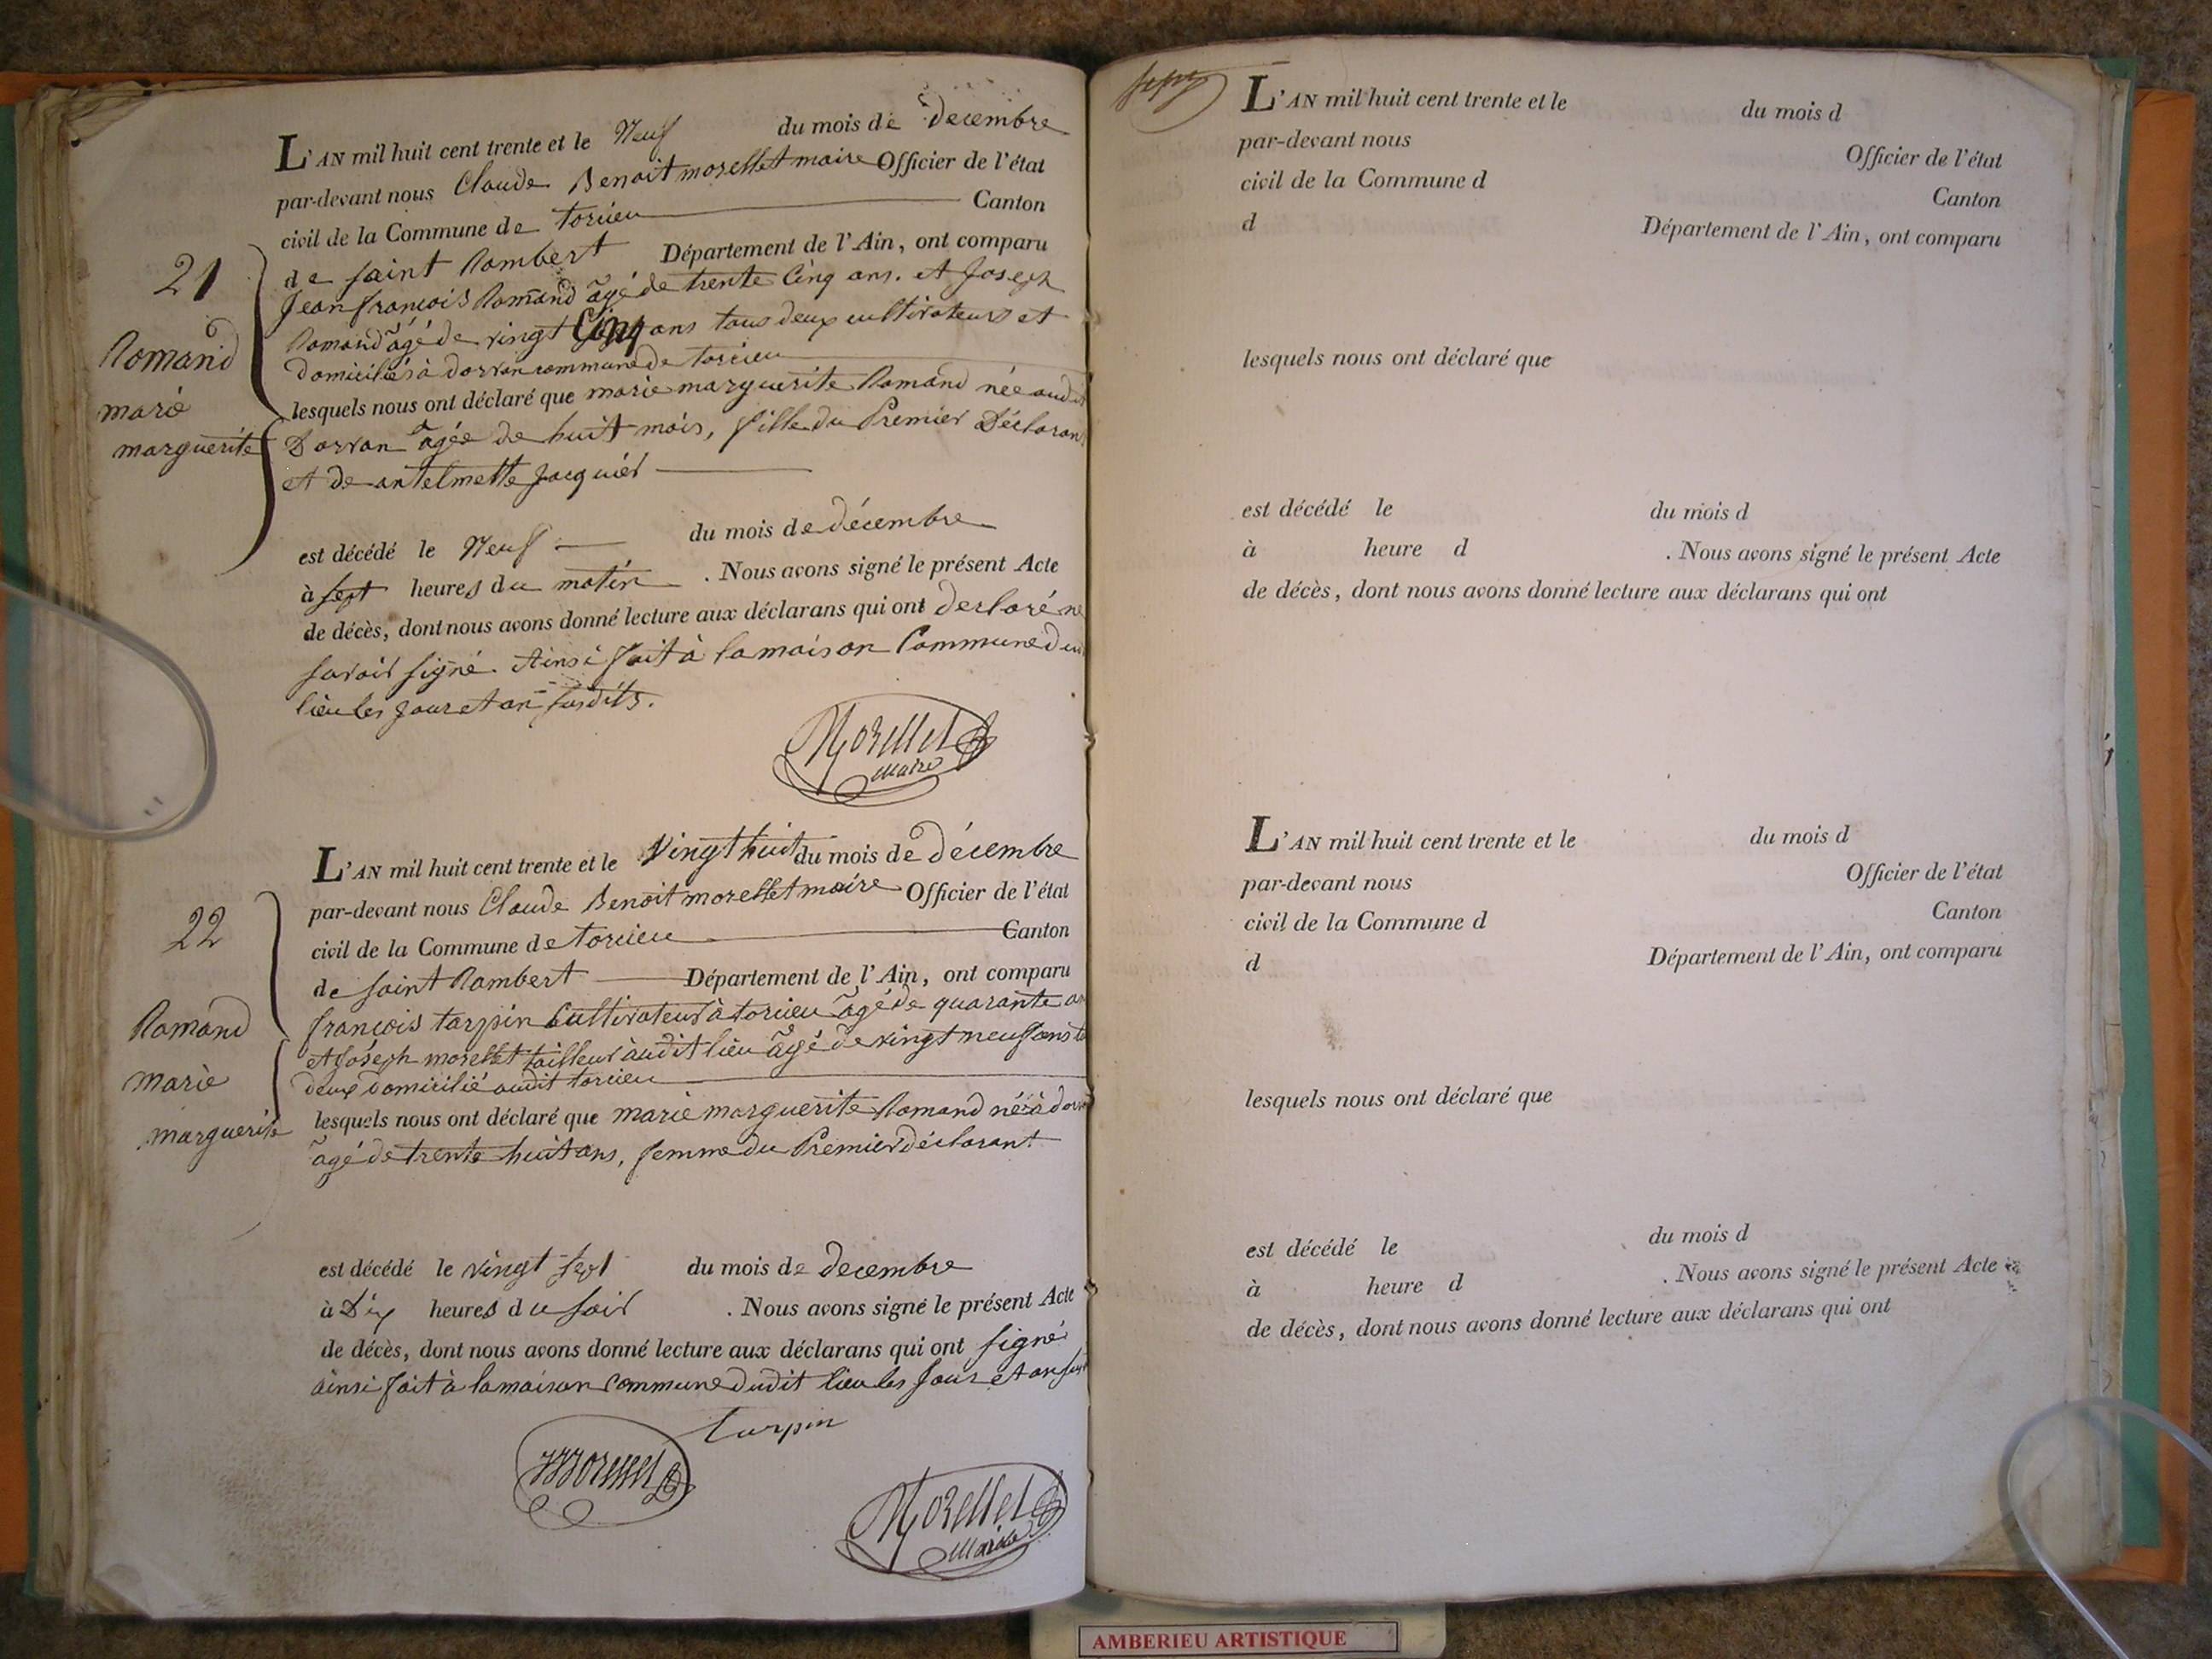 21
Romand
marie
marguerite
L'AN mil huit cent trente et le Neuf du mois de decembre
par-devant nous Claude Benoit morellet maire Officier de l'état
civil de la Commune de torcieu Canton
de saint Rambert Département de l'Ain, ont comparu
Jean françois Romand âgé de trente Cinq ans. et Joseph
Romand âgé de vingt Cinq ans tous deux cultivateurs et
domiciliés à dorvan commune de torcieu
lesquels nous ont déclaré que marie marguerite Romand née audit
Dorvan âgée de huit mois, fille du Premier Déclarant
et de antelmette Jacquier
est décédé le Neuf du mois de décembre
à sept heures du matin . Nous avons signé le présent Acte
de décès, dont nous avons donné lecture aux déclarans qui ont declaré ne
savoir signé. Ainsi fait à la maison Commune dudit
lieu les jour et an susdits.
Morellet
Maire
22
Romand
marie
marguerite
L'AN mil huit cent trente et le Vingt huit du mois de décembre
par-devant nous Claude Benoit morellet maire Officier de l'état
civil de la Commune de torcieu Canton
de saint Rambert Département de l'Ain, ont comparu
françois tarpin Cultivateur à torcieu âgé de quarante an
et Joseph morellet tailleur audit lieu âgé de vingt neuf ans
deux domicilié audit torcieu
lesquels nous ont déclaré que marie marguerite Romand née à dorvan
agé de trente huit ans, femme du Premier déclarant
est décédé le vingt sept du mois de decembre
à Dix heures du soir . Nous avons signé le présent Acte
de décès, dont nous avons donné lecture aux déclarans qui ont signé
ainsi fait à la maison commune dudit lieu les Jour et an
tarpin
Morellet
Morellet
Maire
L'AN mil huit cent trente et le du mois d
par-devant nous Officier de l'état
civil de la Commune d Canton
d Département de l'Ain, ont comparu
lesquels nous ont déclaré que
est décédé le du mois d
à heure d . Nous avons signé le présent Acte
de décès, dont nous avons donné lecture aux déclarans qui ont
L'AN mil huit cent trente et le du mois d
par-devant nous Officier de l'état
civil de la Commune d Canton
d Département de l'Ain, ont comparu
lesquels nous ont déclaré que
est décédé le du mois d
à heure d . Nous avons signé le présent Acte
de décès, dont nous avons donné lecture aux déclarans qui ont
AMBERIEU ARTISTIQUE